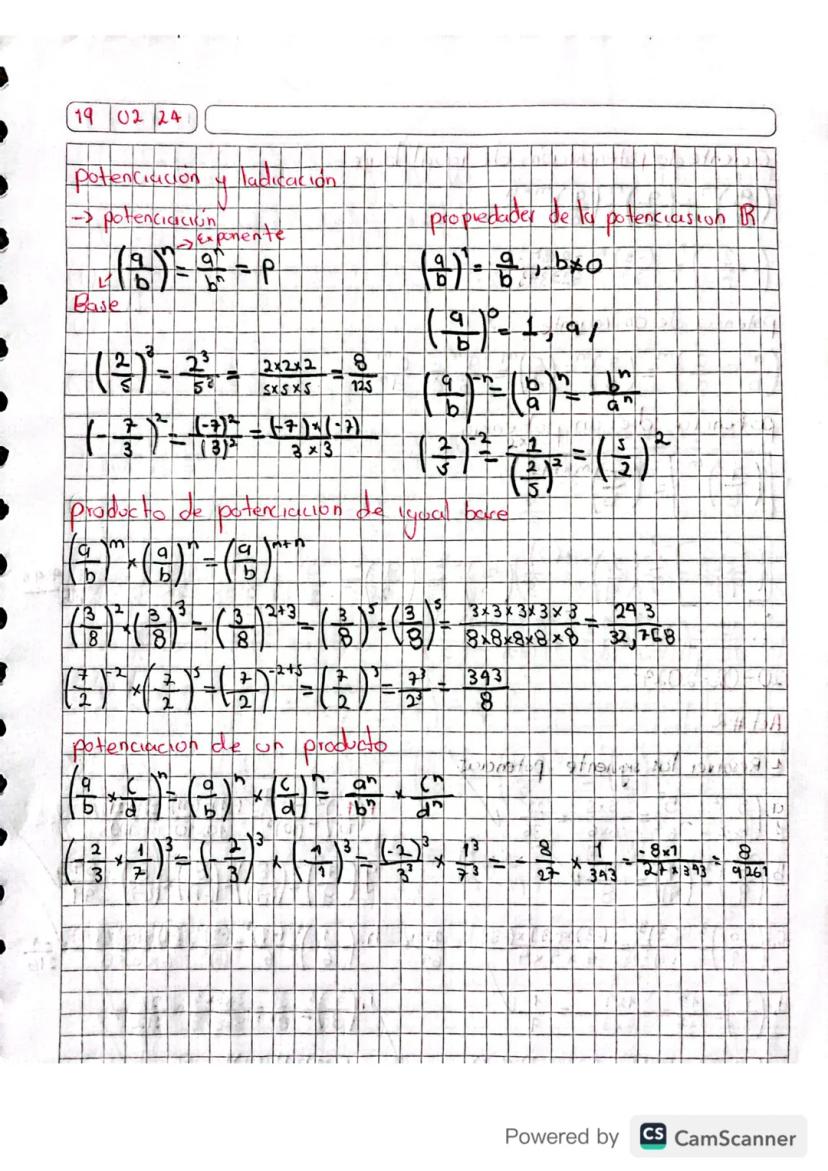 19 02 24
potenciación y ladicación
-> potenciación
-> Exponente
(a/b)^n = a^n/b^n = P
Base
(2/5)^3 = 2^3/5^3 = 2x2x2/5x5x5 = 8/125
(-7/3)^2 = (-7)^2/(3)^2 = (-7)x(-7)/3x3
propiedader de la potenciasion ℝ
(a/b)^1 = a/b, b≠0
(a/b)^0 = 1, a/
(a/b)^-n = (b/a)^n = b^n/a^n
(2/5)^-2 = 1/(2/5)^2 = (5/2)^2
producto de potenciacion de igual base
(a/b)^m x (a/b)^n = (a/b)^m+n
(3/8)^2 x (3/8)^3 = (3/8)^2+3 = (3/8)^5 = (3/8)^5 = 3x3x3x3x3/8x8x8x8x8 = 243/32,768
(7/2)^-2 x (7/2)^5 = (7/2)^-2+5 = (7/2)^3 = 7^3/2^3 = 343/8
potenciacion de un producto
(a/b x c/d)^n = (a/b)^n x (c/d)^n = a^n/b^n x c^n/d^n
(-2/3 x 1/7)^3 = (-2/3)^3 x (1/7)^3 = (-2)^3/3^3 x 1^3/7^3 = -8/27 x 1/343 = -8x1/27x343 = 8/9261
Powered by CS CamScanner